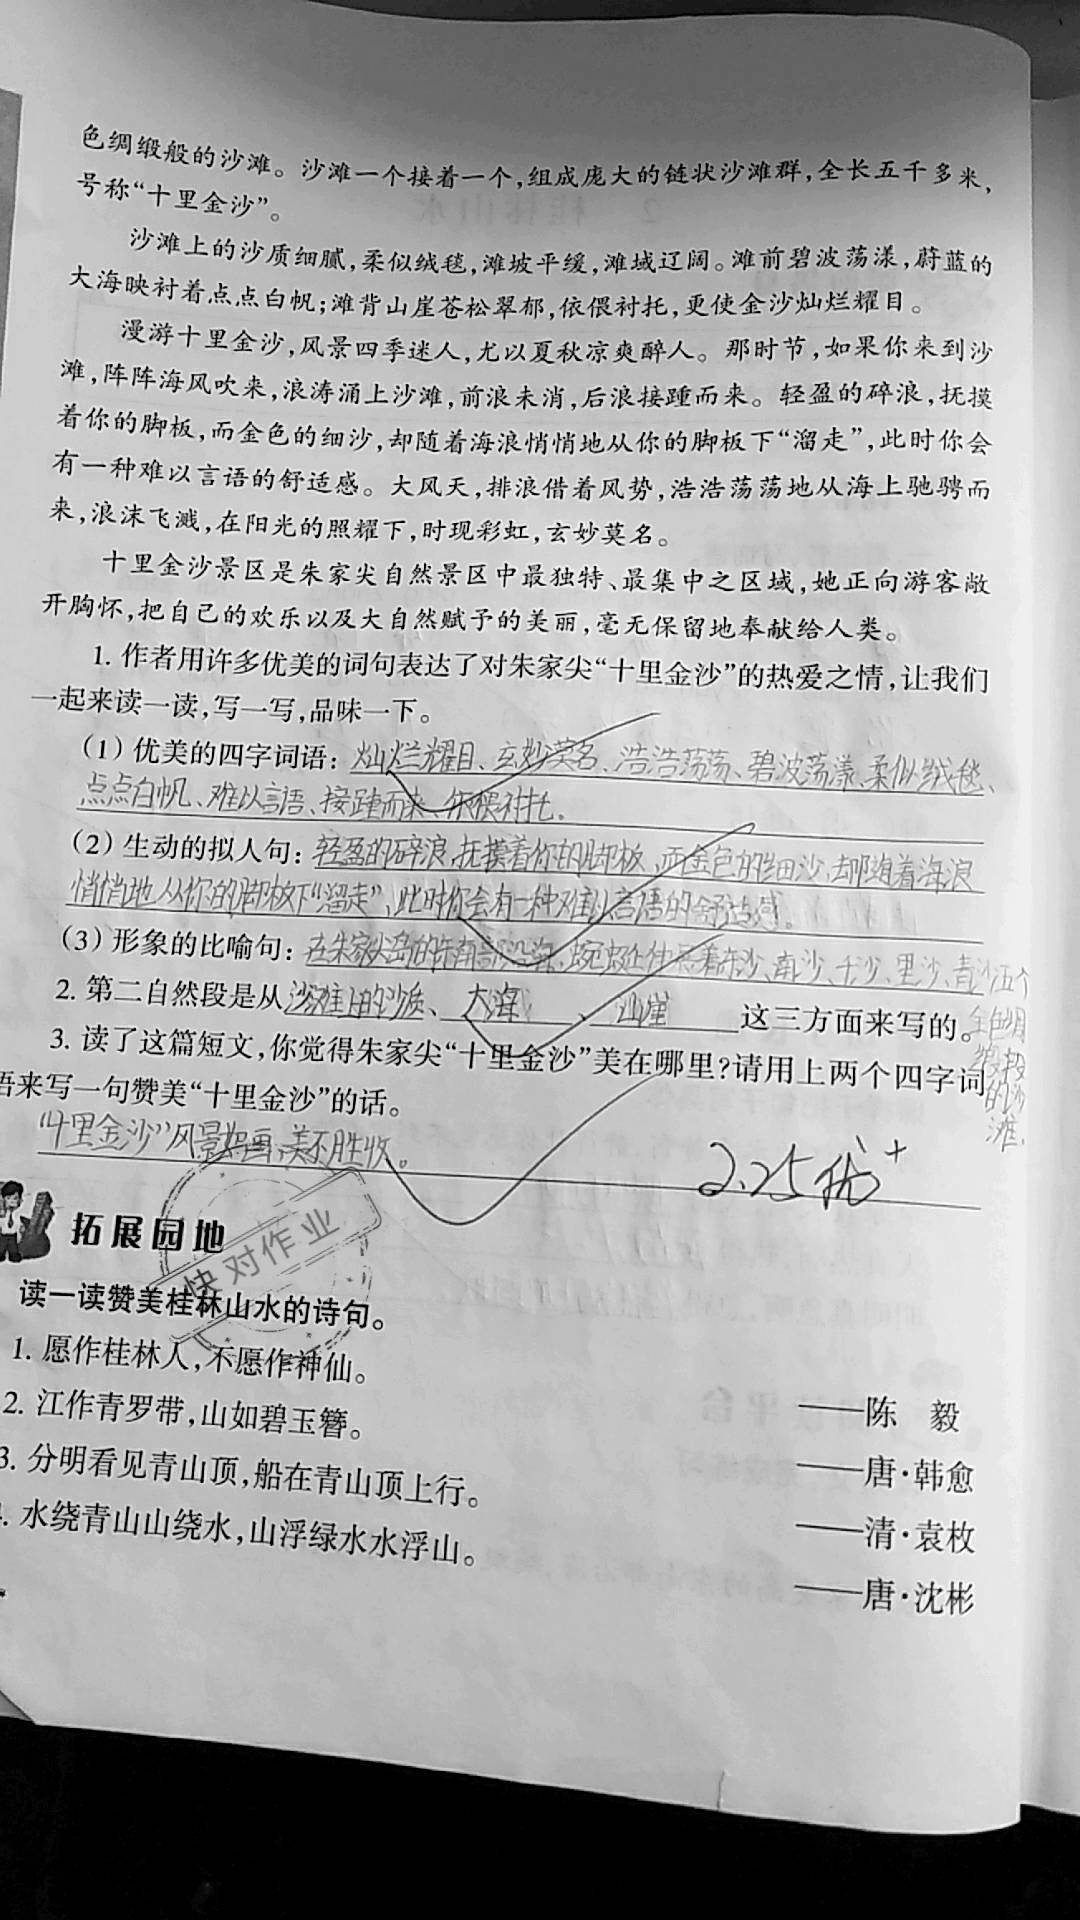 色绸缎般的沙滩。沙滩一个接着一个,组成庞大的链状沙滩群,全长五千多米,
号称“十里金沙”。
沙滩上的沙质细腻,柔似绒毯,滩坡平缓,滩域辽阔。滩前碧波荡漾,蔚蓝的
大海映衬着点点白帆;滩背山崖苍松翠郁,依偎衬托,更使金沙灿烂耀目。
漫游十里金沙,风景四季迷人,尤以夏秋凉爽醉人。那时节,如果你来到沙
滩,阵阵海风吹来,浪涛涌上沙滩,前浪未消,后浪接踵而来。轻盈的碎浪,抚摸
着你的脚板,而金色的细沙,却随着海浪悄悄地从你的脚板下“溜走”,此时你会
有一种难以言语的舒适感。大风天,排浪借着风势,浩浩荡荡地从海上驰骋而
来,浪沫飞溅,在阳光的照耀下,时现彩虹,玄妙莫名。
十里金沙景区是朱家尖自然景区中最独特、最集中之区域,她正向游客敞
开胸怀,把自己的欢乐以及大自然赋予的美丽,毫无保留地奉献给人类。
1. 作者用许多优美的词句表达了对朱家尖“十里金沙”的热爱之情,让我们
一起来读一读,写一写,品味一下。
(1) 优美的四字词语:灿烂耀目、玄妙莫名、浩浩荡荡、碧波荡漾、柔似绒毯、
点点白帆、难以言语、接踵而来、依偎衬托。
(2) 生动的拟人句:轻盈的碎浪,抚摸着你的脚板,而金色的细沙,却随着海浪
悄悄地从你的脚板下“溜走”,此时你会有一种难以言语的舒适感。
(3) 形象的比喻句:在朱家尖岛的东南部沿海,蜿蜒伸展着东沙、南沙、千沙、里沙、青沙五个
金色绸
缎般
的沙
滩。
2. 第二自然段是从沙滩上的沙质、大海、山崖这三方面来写的。
3. 读了这篇短文,你觉得朱家尖“十里金沙”美在哪里?请用上两个四字词
语来写一句赞美“十里金沙”的话。
“十里金沙”风景如画,美不胜收。
2.25 优+
拓展园地
快对作业
读一读赞美桂林山水的诗句。
1. 愿作桂林人,不愿作神仙。
——陈 毅
2. 江作青罗带,山如碧玉簪。
——唐·韩愈
3. 分明看见青山顶,船在青山顶上行。
——清·袁枚
. 水绕青山山绕水,山浮绿水水浮山。
——唐·沈彬